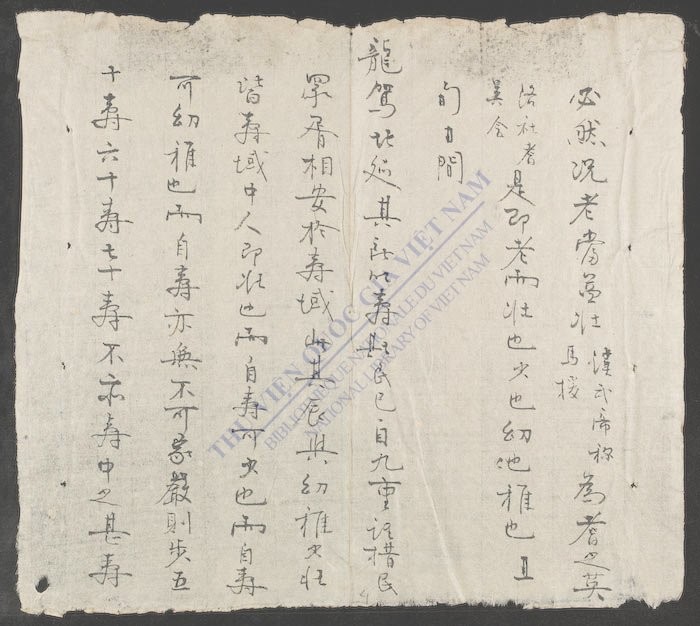 必然况老當益壯漢武帝称馬援為耆之英
洛社耆英会是即老而壯也少也幼也稚也且
旬日間
龍駕北廵其所以壽斯民已自九重措民
胥相安於壽域此其辰與幼稚少壮
皆壽域中人即壮也而自壽可少也而自壽
可幼稚也而自壽亦無不可家嚴則步五
十壽六十壽七十壽不亦壽中之甚壽
THƯ VIỆN QUỐC GIA VIỆT NAM
BIBLIOTHÈQUE NATIONALE DU VIETNAM
NATIONAL LIBRARY OF VIETNAM